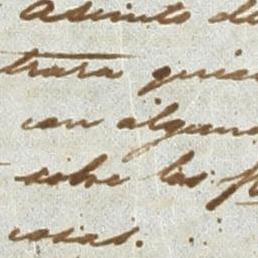 Asunto de
trara quie
con alguna
sobre las
cosas.